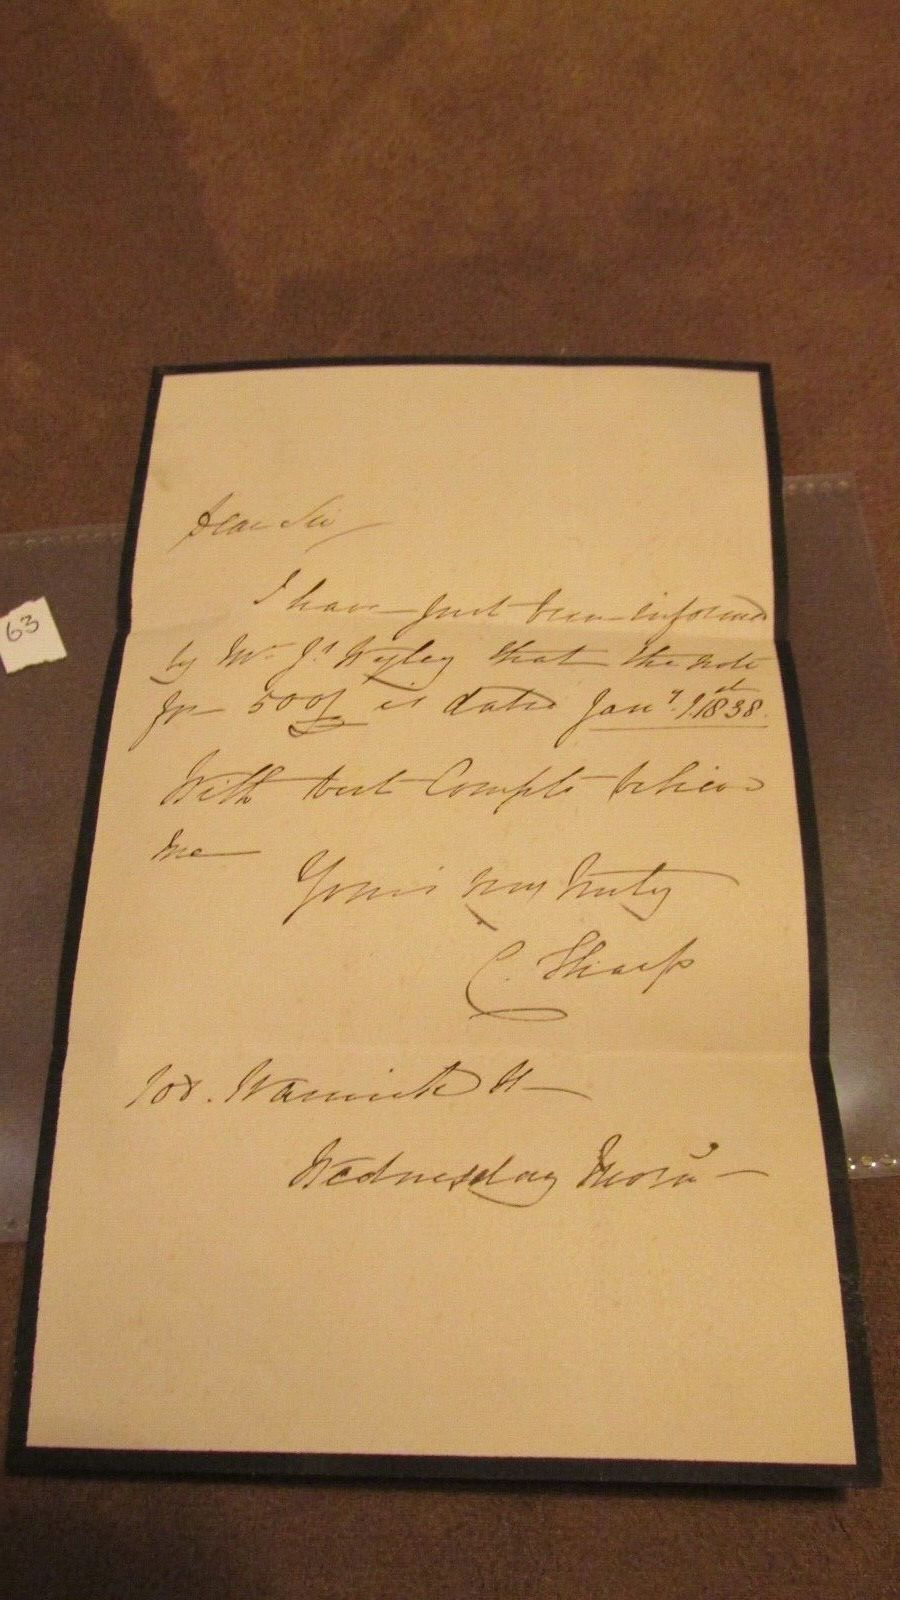 63
Dear Sir
I have just been informed
by Mr. Js. Wyley that the note
for 500£ is dated Jany. 1st 1838.
With best Compts believe
me
Yours very truly
C. Sharp
108. Warwick St
Wednesday Morn